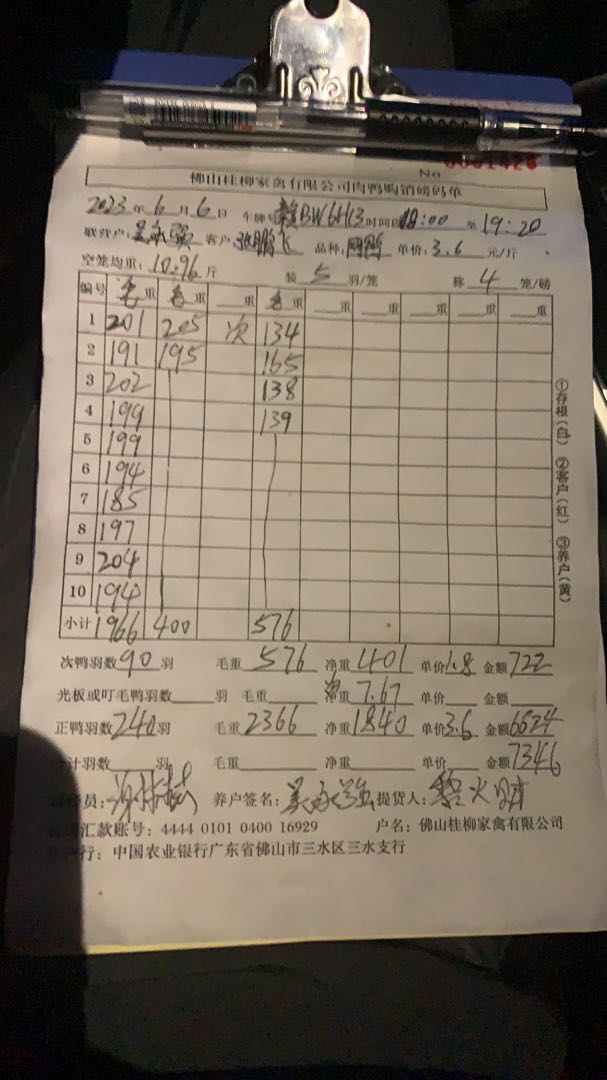 No 0031426
佛山桂柳家禽有限公司肉鸭购销磅码单
2023年6月6日 车牌 赣BW6H13 时间 18:00 至 19:20
联营户: 吴永强 客户: 张鹏飞 品种: 单价: 3.6 元/斤
空笼均重: 10.96 斤 装 5 羽/笼 称 4 笼/磅
编号 毛重 毛重 重 毛重 重 重 重 重
1 201 205 次 134
2 191 195 165
3 202 138
4 199 139
5 199
6 194
7 185
8 197
9 204
10 194
小计 1966 400 576
①存根(白) ②客户(红) ③养户(黄)
次鸭羽数 90 羽 毛重 576 净重 401 单价 1.8 金额 722
光板或叮毛鸭羽数 羽 毛重 净重 7.67 单价 金额
正鸭羽数 240 羽 毛重 2366 净重 1840 单价 3.6 金额 6624
计羽数 羽 毛重 净重 单价 金额 7346
员: 养户签名: 吴永强 提货人:
汇款账号: 4444 0101 0400 16929 户名: 佛山桂柳家禽有限公司
行: 中国农业银行广东省佛山市三水区三水支行